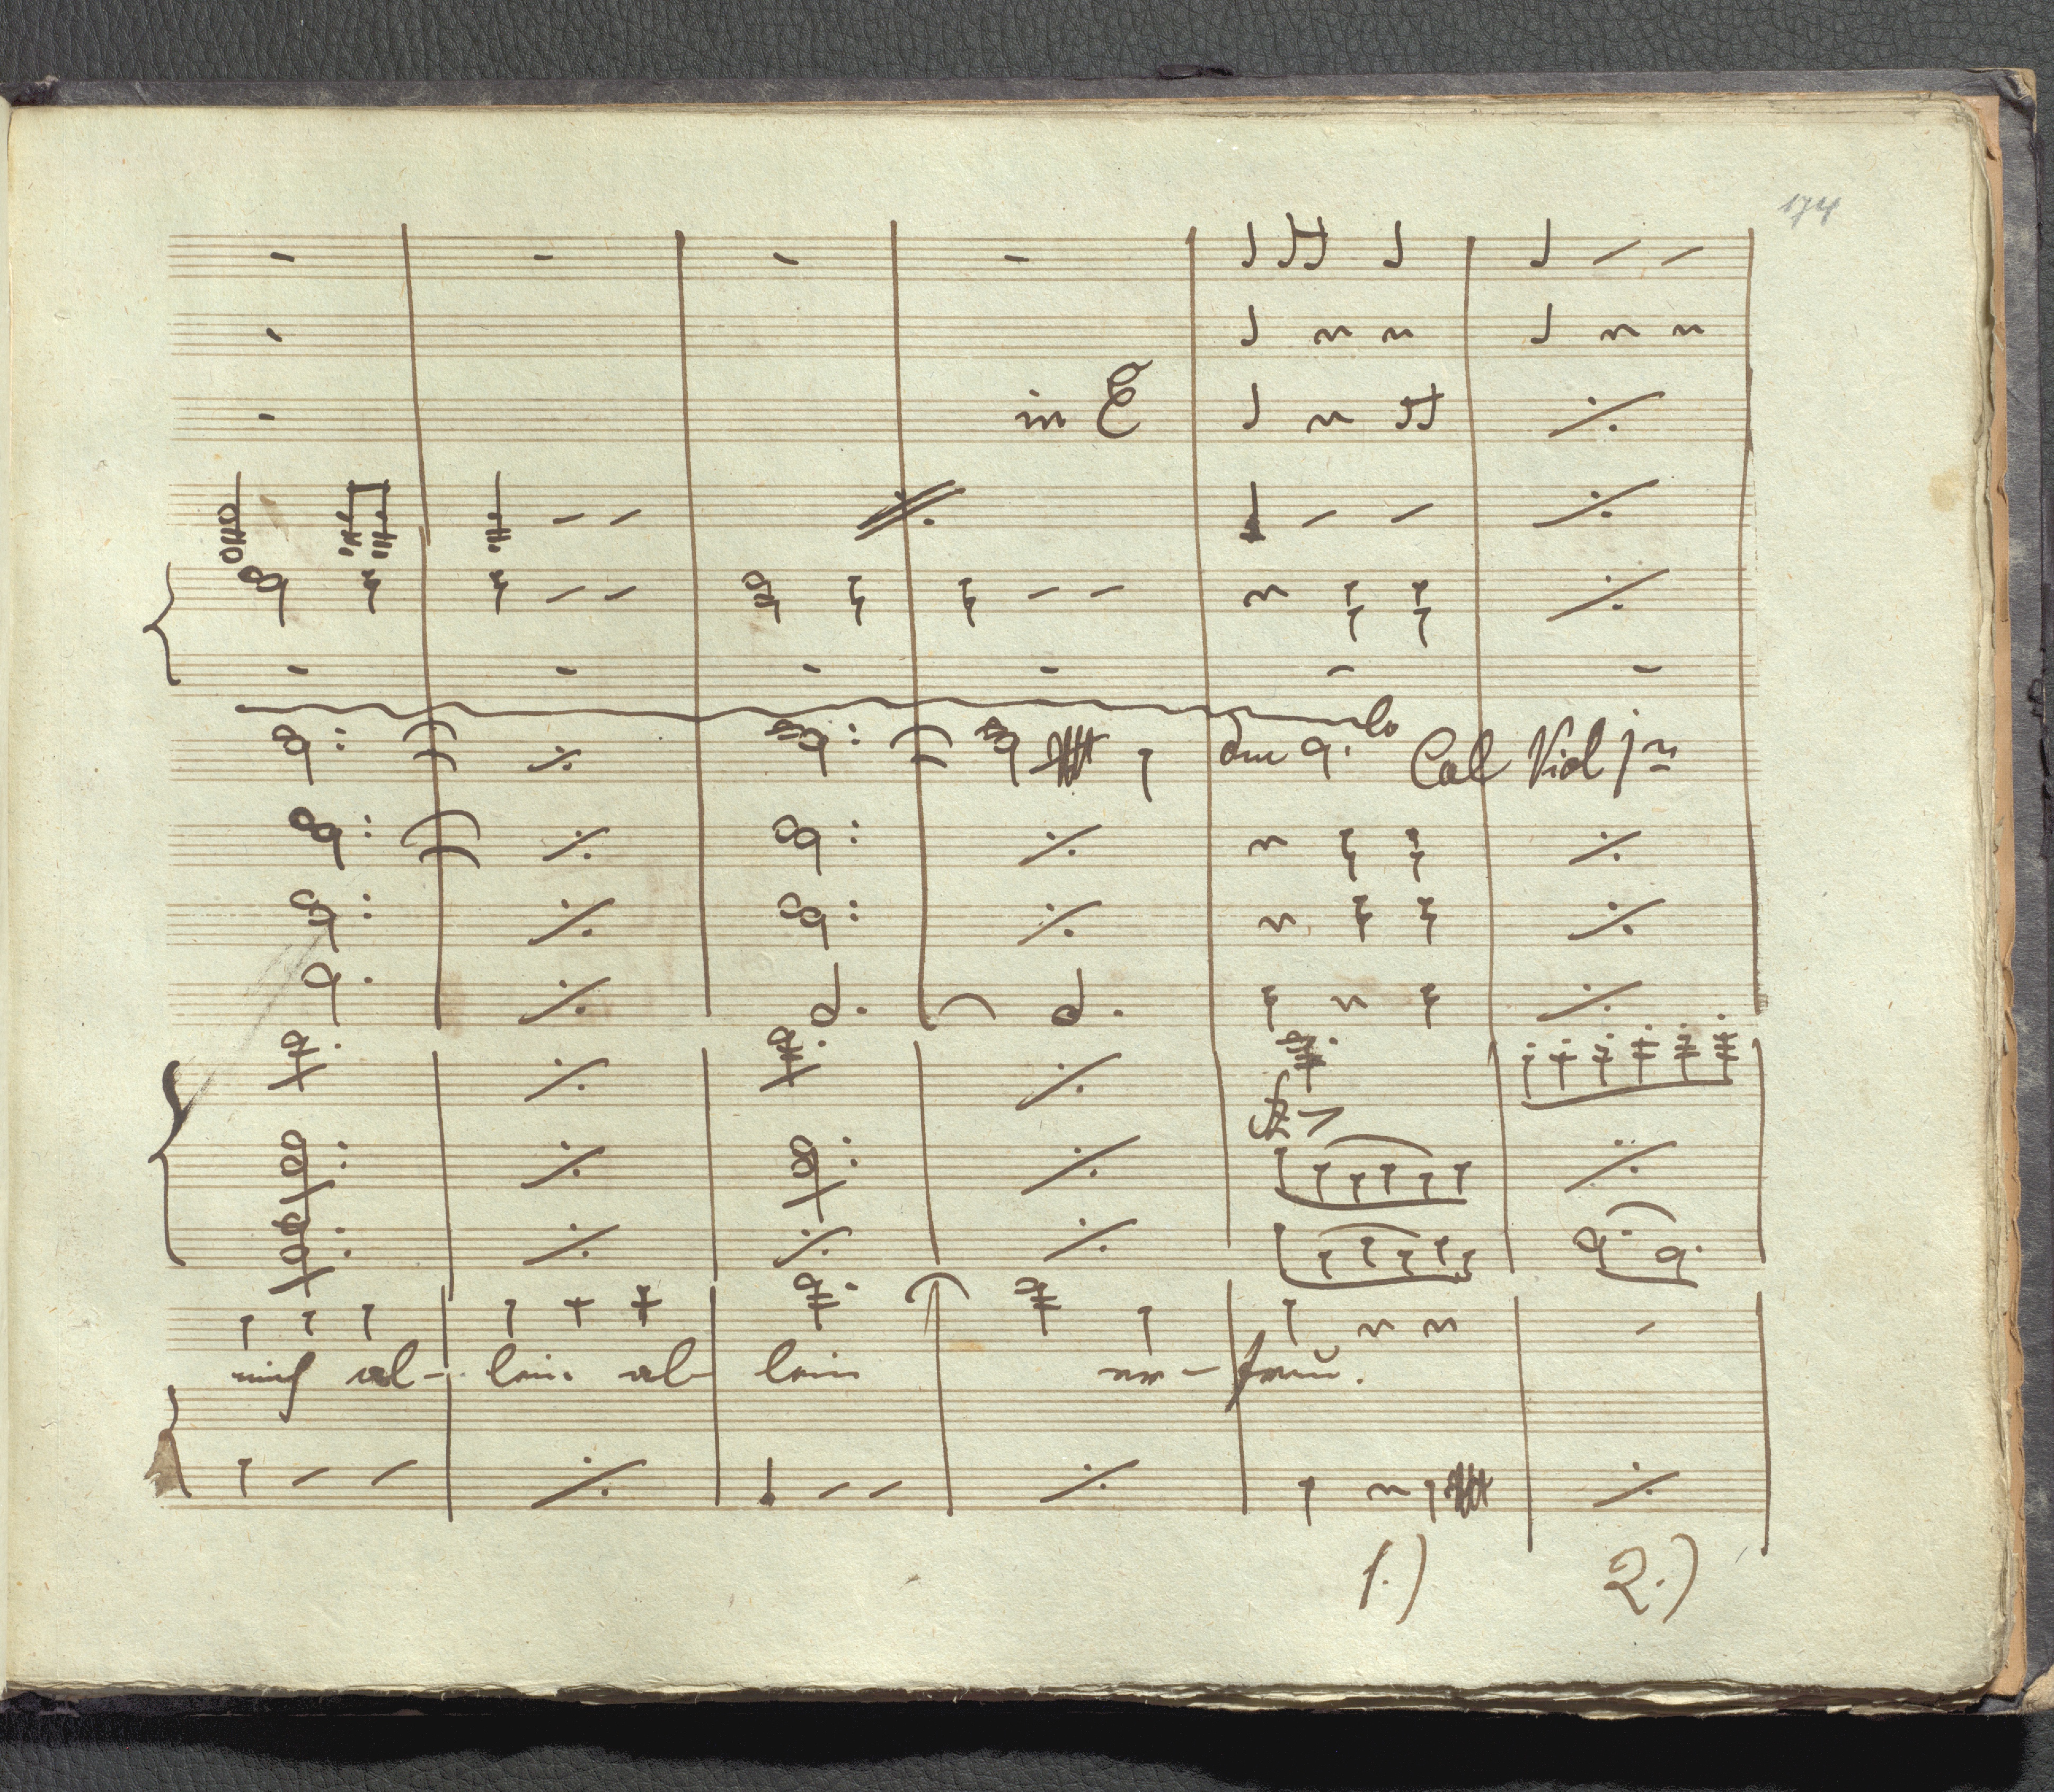 174
in E
lo
Col Viol 1mo
mich al- lein al lein er- freu.
1.) 2.)